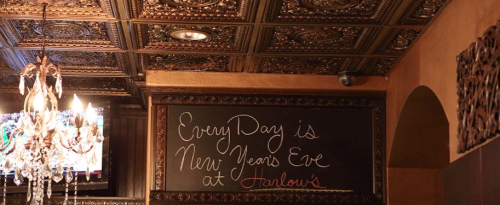 EveryDay is
New Year's Eve
at Harlow's